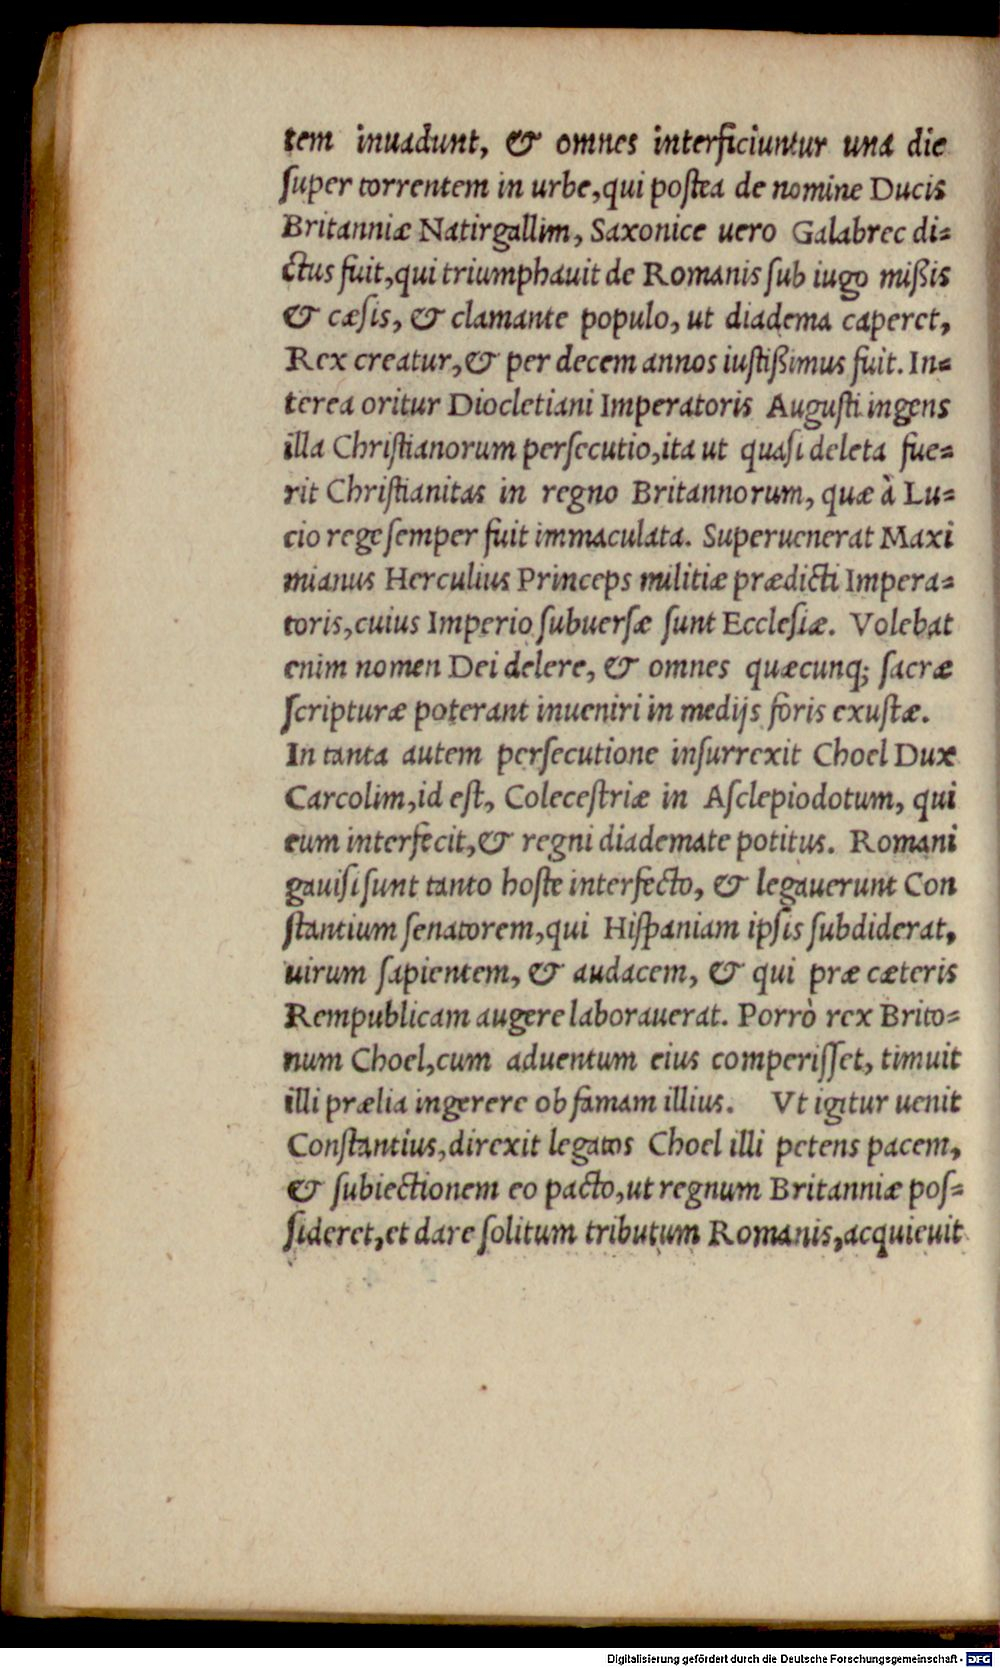 tem inuadunt, & omnes interficiuntur una die
ſuper torrentem in urbe,qui poſtea de nomine Ducis
Britanniæ Natirgallim, Saxonice uero Galabrec di=
ctus fuit,qui triumphauit de Romanis ſub iugo mißis
& cæſis, & clamante populo, ut diadema caperet,
Rex creatur,& per decem annos iuſtißimus fuit. In=
terea oritur Diocletiani Imperatoris Auguſti ingens
illa Chriſtianorum perſecutio,ita ut quaſi deleta fue=
rit Chriſtianitas in regno Britannorum, quæ à Lu=
cio rege ſemper fuit immaculata. Superuenerat Maxi
mianus Herculius Princeps militiæ prædicti Impera=
toris,cuius Imperio ſubuerſæ ſunt Eccleſiæ. Volebat
enim nomen Dei delere, & omnes quæcunq; ſacræ
ſcripturæ poterant inueniri in medijs foris exuſtæ.
In tanta autem perſecutione inſurrexit Choel Dux
Carcolim,id eſt, Coleceſtriæ in Aſclepiodotum, qui
eum interfecit,& regni diademate potitus. Romani
gauiſi ſunt tanto hoſte interfecto, & legauerunt Con
ſtantium ſenatorem,qui Hiſpaniam ipſis ſubdiderat,
uirum ſapientem, & audacem, & qui præ cæteris
Rempublicam augere laborauerat. Porrò rex Brito=
num Choel,cum aduentum eius comperiſſet, timuit
illi prælia ingerere ob famam illius. Vt igitur uenit
Conſtantius,direxit legatos Choel illi petens pacem,
& ſubiectionem eo pacto,ut regnum Britanniæ poſ=
ſideret,et dare ſolitum tributum Romanis,acquieuit
Digitalisierung gefördert durch die Deutsche Forschungsgemeinschaft - DFG